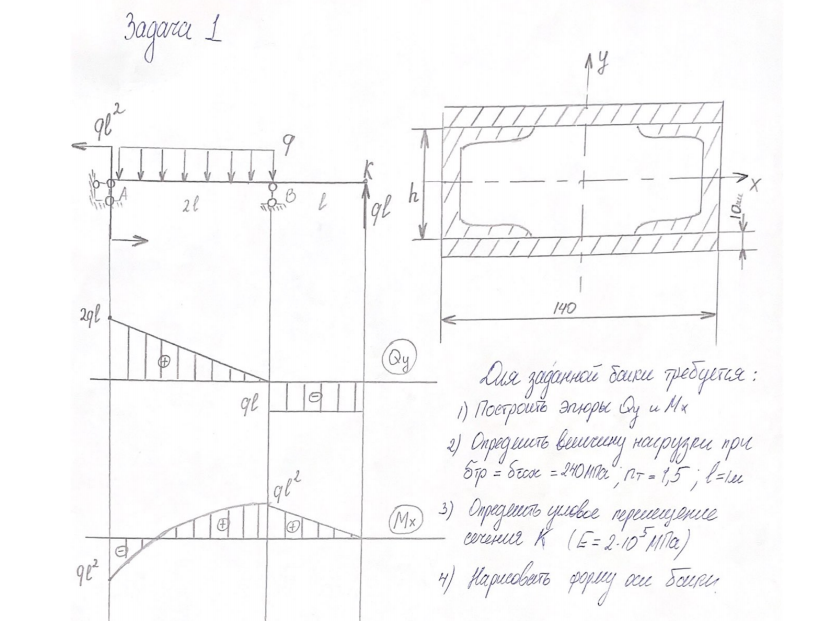 Задача 1
ql²
q
K
A
2l
B
l
ql
y
x
h
10мм
140
2ql
Qy
ql
ql²
Mx
ql²
Для заданной балки требуется:
1) Построить эпюры Qy и Mx
2) Определить величину нагрузки при
σтр = σтсж = 240 МПа; nт = 1,5; l = 1м
3) Определить угловое перемещение
сечения K (E = 2·10⁵ МПа)
4) Нарисовать форму оси балки.